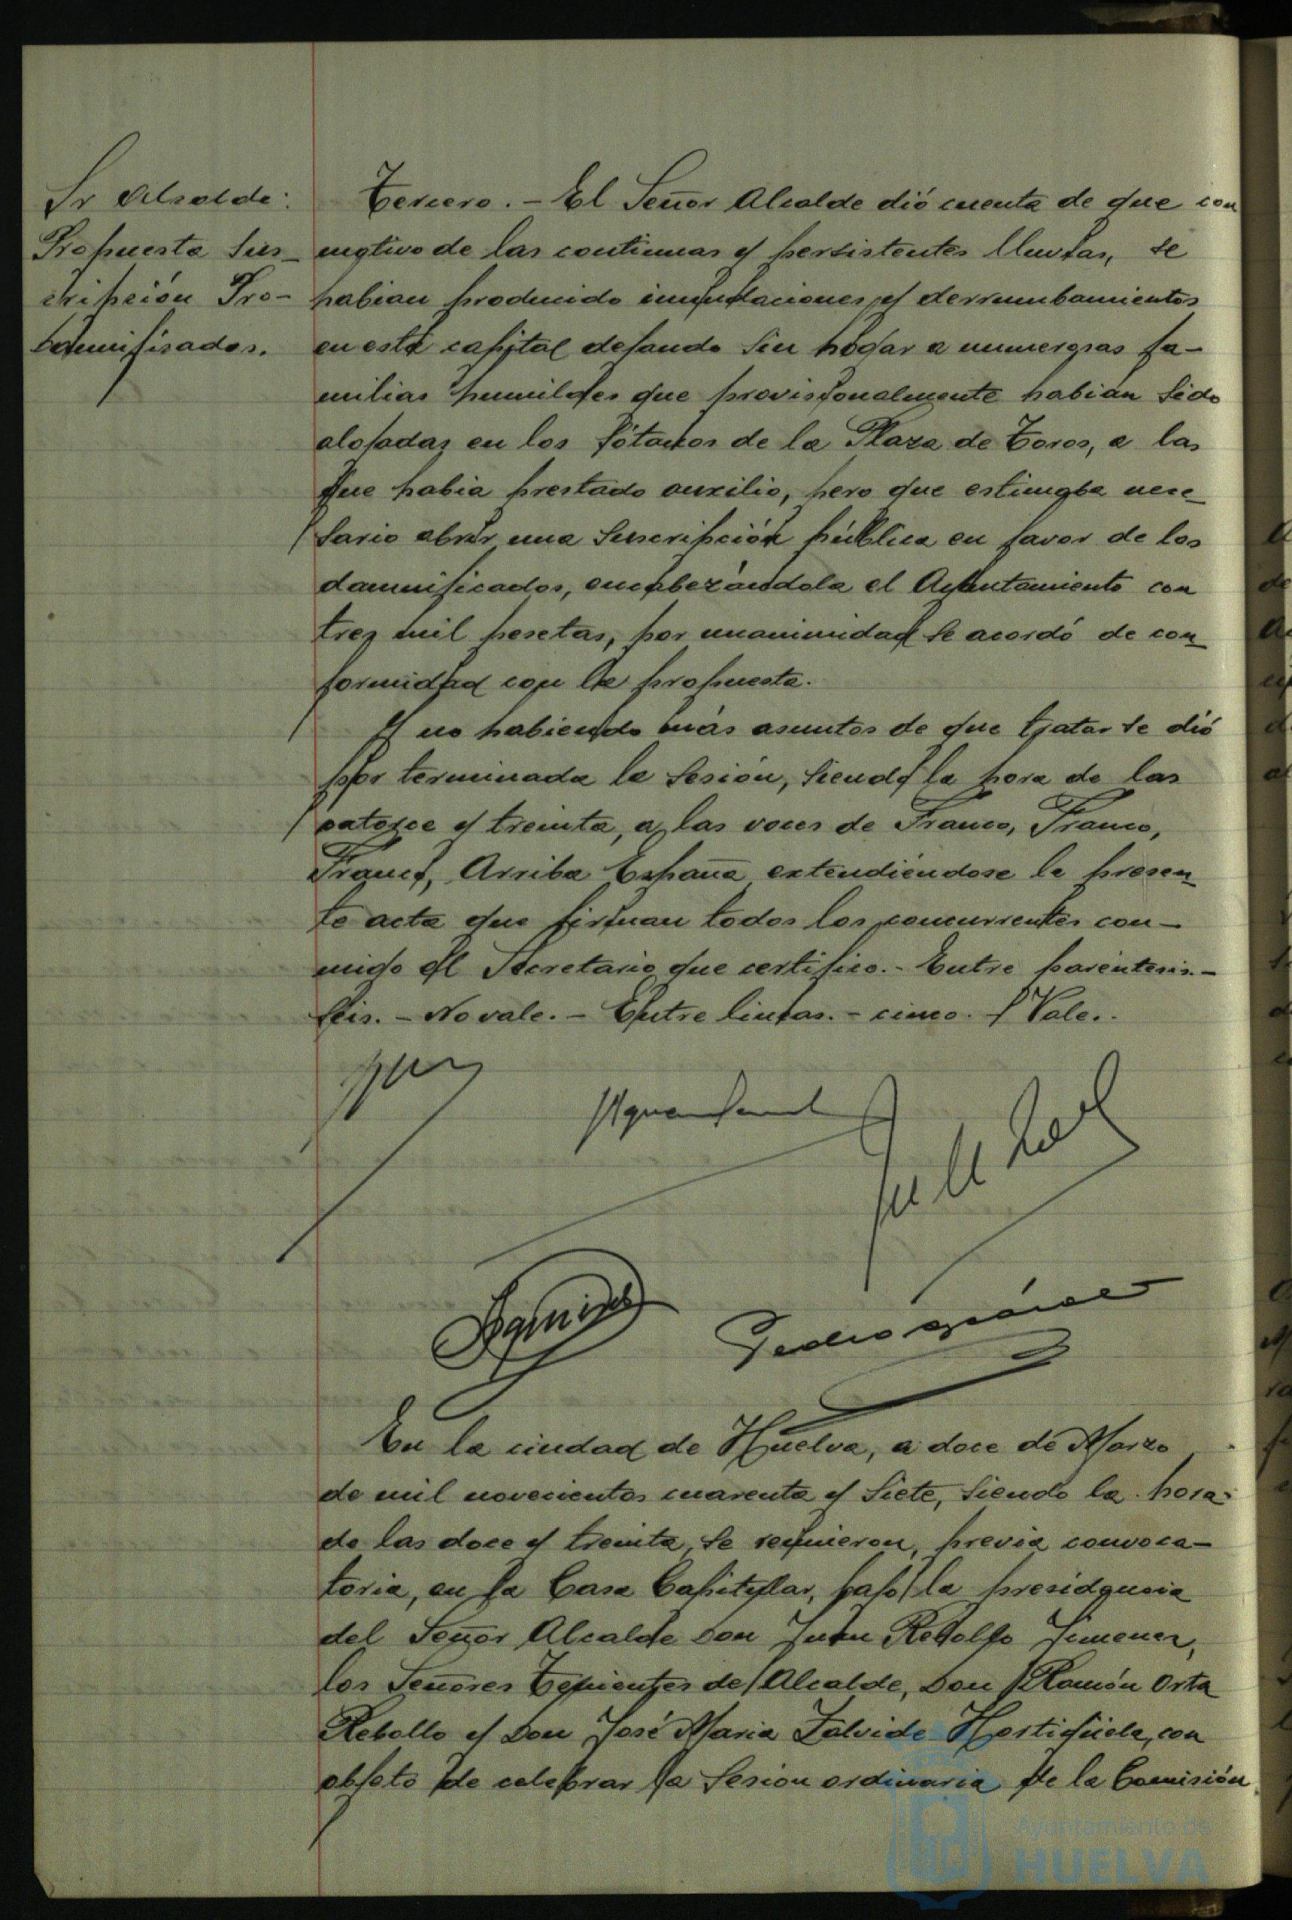 Sr Alcalde:
Propuesta Sus-
cripción Pro-
damnificados.
Tercero. - El Señor Alcalde dió cuenta de que con
motivo de las continuas y persistentes lluvias, se
habian producido inundaciones y derrumbamientos
en esta capital dejando sin hogar a numerosas fa-
milias humildes que provisionalmente habian sido
alojadas en los sótanos de la Plaza de Toros, a las
que habia prestado auxilio, pero que estimaba nece-
sario abrir una suscripción pública en favor de los
damnificados, encabezándola el Ayuntamiento con
tres mil pesetas, por unanimidad se acordó de con-
formidad con la propuesta.
Y no habiendo más asuntos de que tratar se dió
por terminada la sesión, siendo la hora de las
catorce y treinta, a las voces de Franco, Franco,
Franco, Arriba España extendiéndose la presen-
te acta que firman todos los concurrentes con-
migo el Secretario que certifico. - Entre paréntesis. -
seis. - No vale. - Entre lineas. - cinco. - Vale.
Pedro
En la ciudad de Huelva, a doce de Marzo
de mil novecientos cuarenta y siete, siendo la hora
de las doce y treinta, se reunieron, previa convoca-
toria, en la Casa Capitular, bajo la presidencia
del Señor Alcalde Don Juan Rebollo Jimenez,
los Señores Tenientes de Alcalde, Don Ramón Orta
Rebollo y Don José Maria Zalvide Hortigüela, con
objeto de celebrar la sesión ordinaria de la Comisión
Ayuntamiento de
HUELVA